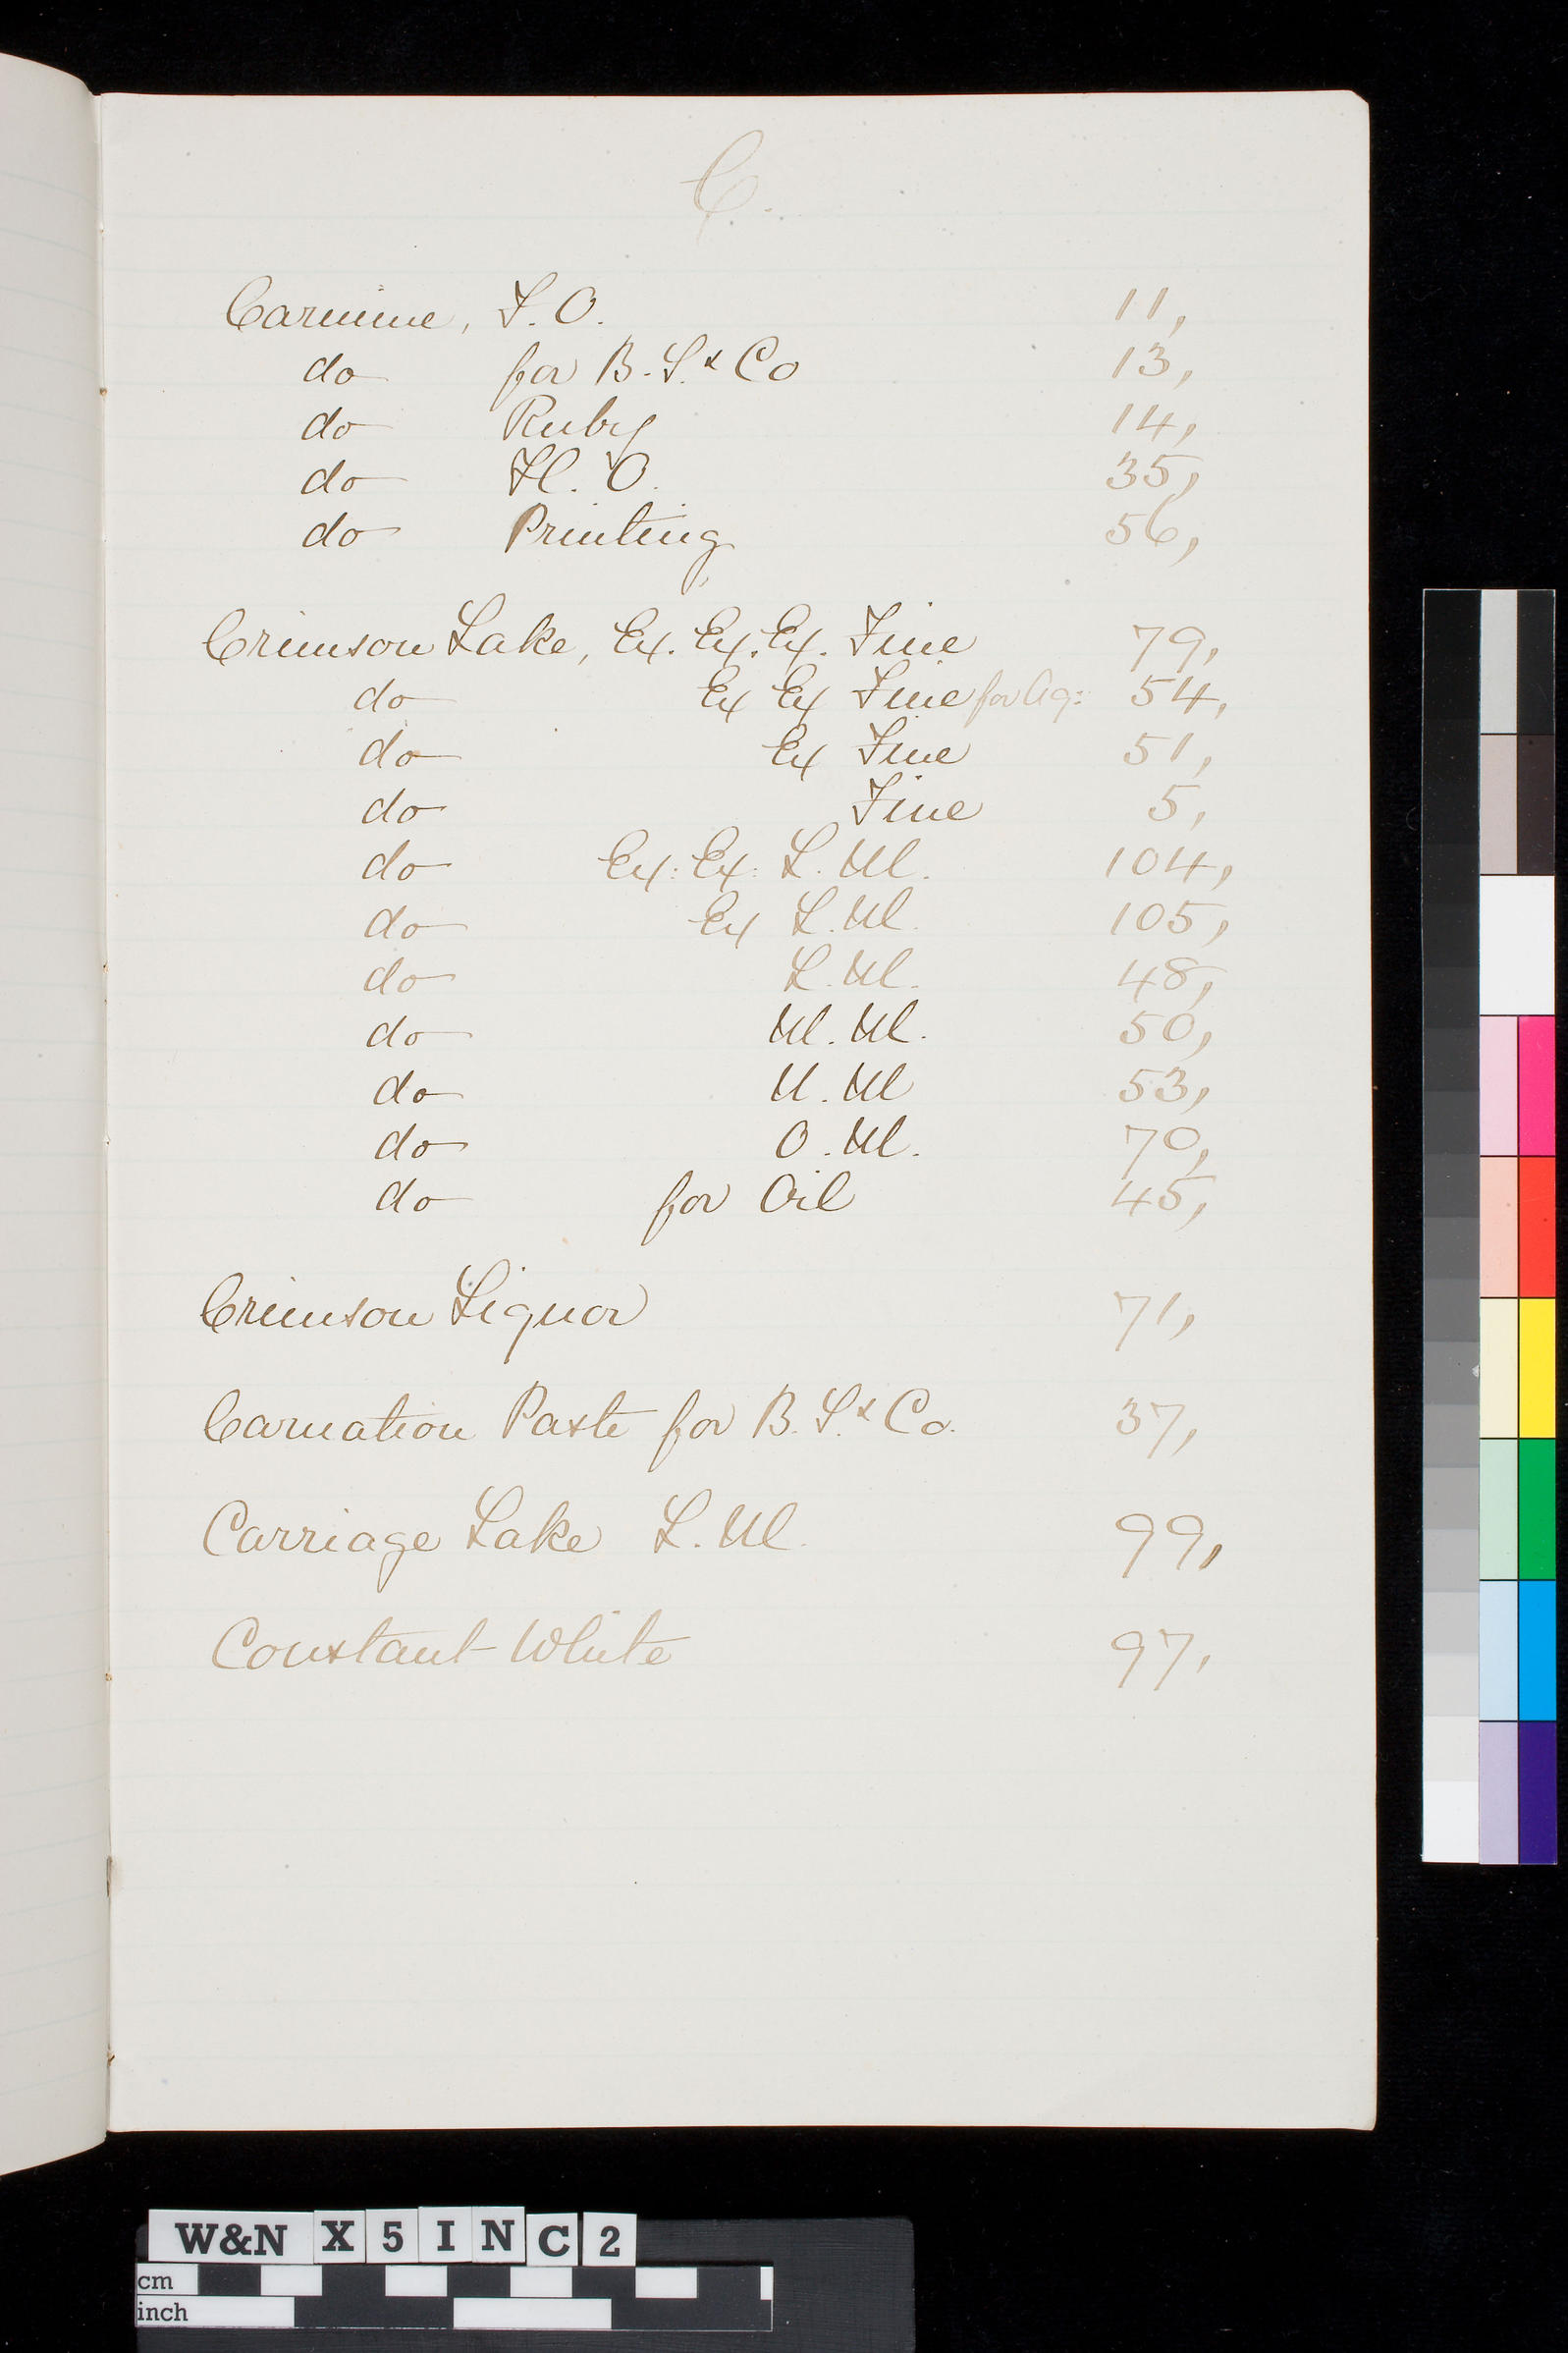 C.
Carmine, F.O. 11,
do for B.S. & Co 13,
do Ruby 14,
do H.O. 35,
do Printing 56,
Crimson Lake, Ex. Ex. Ex. Fine 79,
do Ex Ex Fine for Aq: 54,
do Ex Fine 51,
do Fine 5,
do Ex: Ex: L.M. 104,
do Ex L.M. 105,
do L.M. 48,
do M.M. 50,
do U.M 53,
do O.M. 70,
do for Oil 45,
Crimson Liquor 71,
Carnation Paste for B.S. & Co. 37,
Carriage Lake L.M. 99,
Constant White 97,
W&N X 5 I N C 2
cm
inch